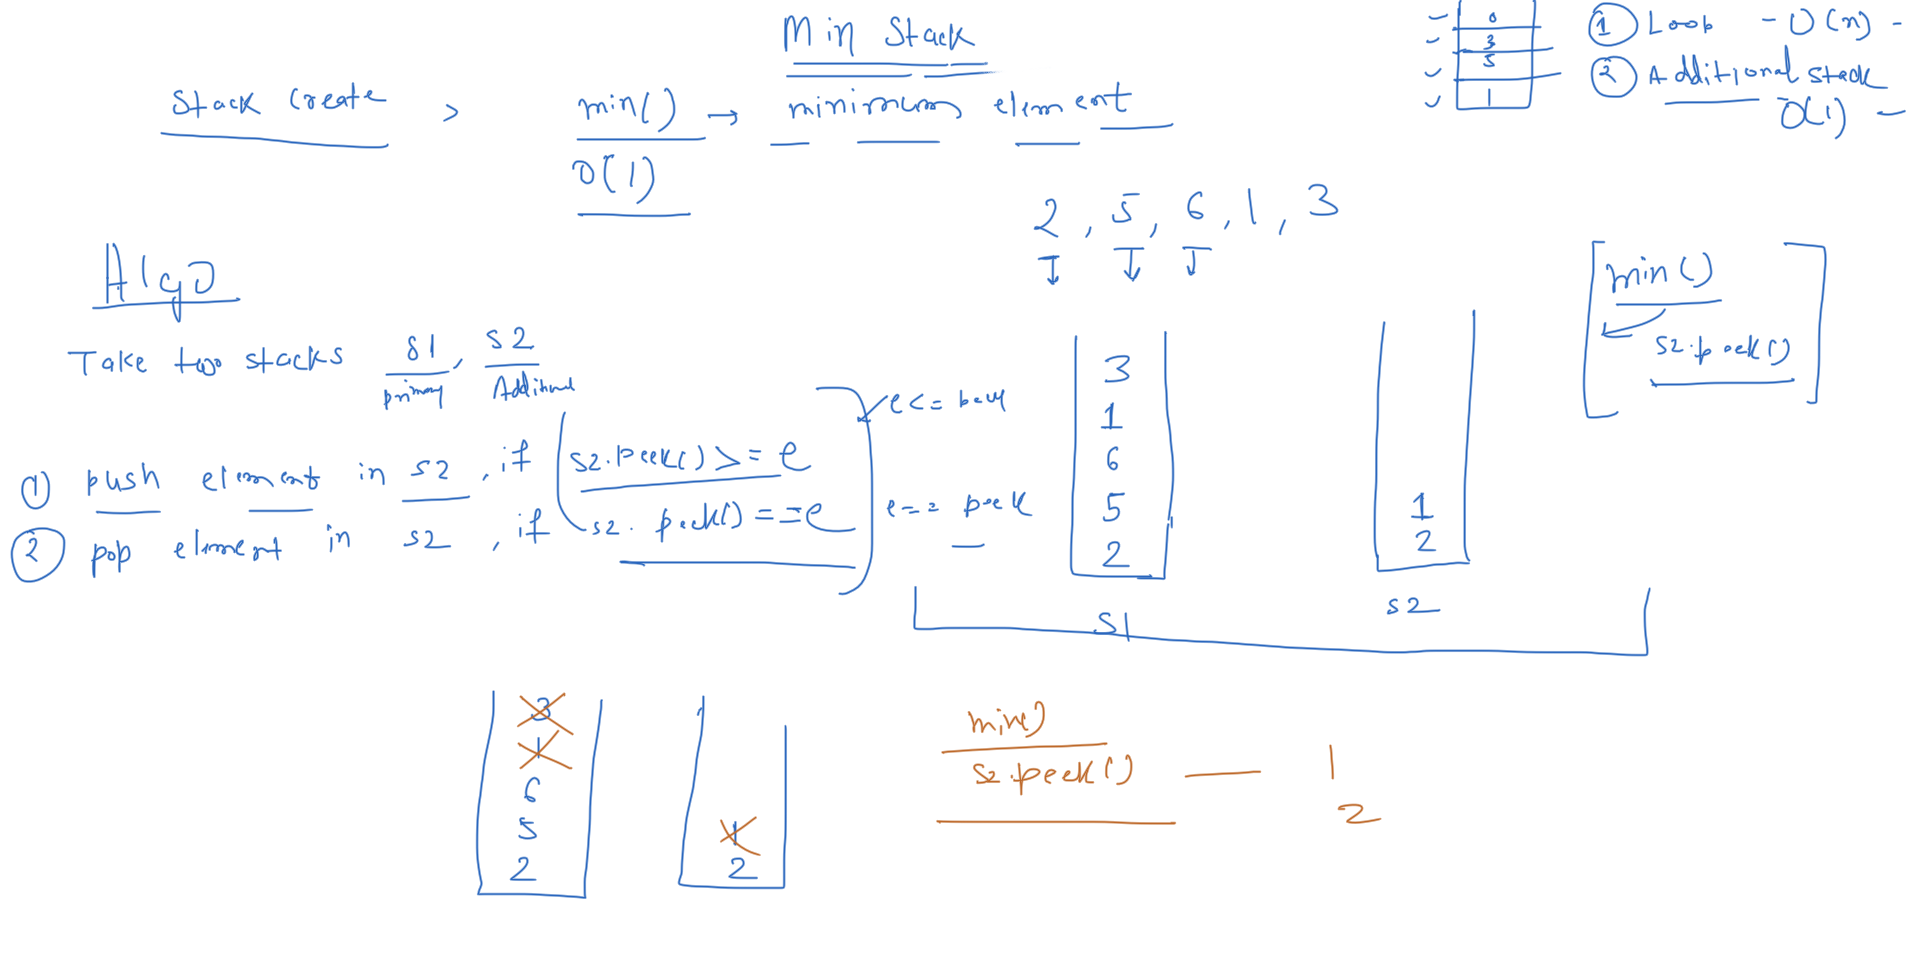 Min Stack
Stack Create > min() → minimum element
O(1)
0
3
5
1
① Loop - O(n) -
② Additional stack
O(1) -
2, 5, 6, 1, 3
Algo
Take two stacks s1, s2
primary Additional
① push element in s2, if s2.peek() >= e
② pop element in s2, if s2.peek() == e
e <= peek
e == peek
3
1
6
5
2
s1
1
2
s2
min()
s2.peek()
3
1
6
5
2
1
2
min()
s2.peek() — 1
2